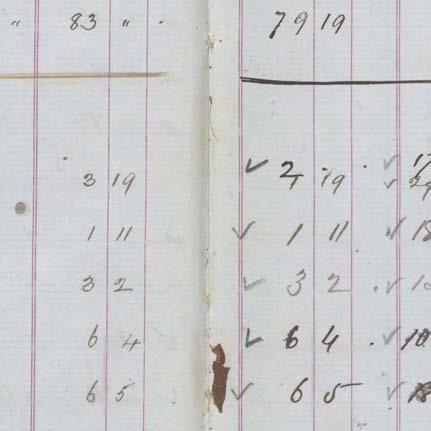 " 83 " . 79 19
3 19 ✓ 2 19 ✓
1 11 ✓ 1 11 ✓ 18
3 2 ✓ 3 2 ✓
6 4 ✓ 6 4 ✓ 10
6 5 ✓ 6 5 ✓ 18